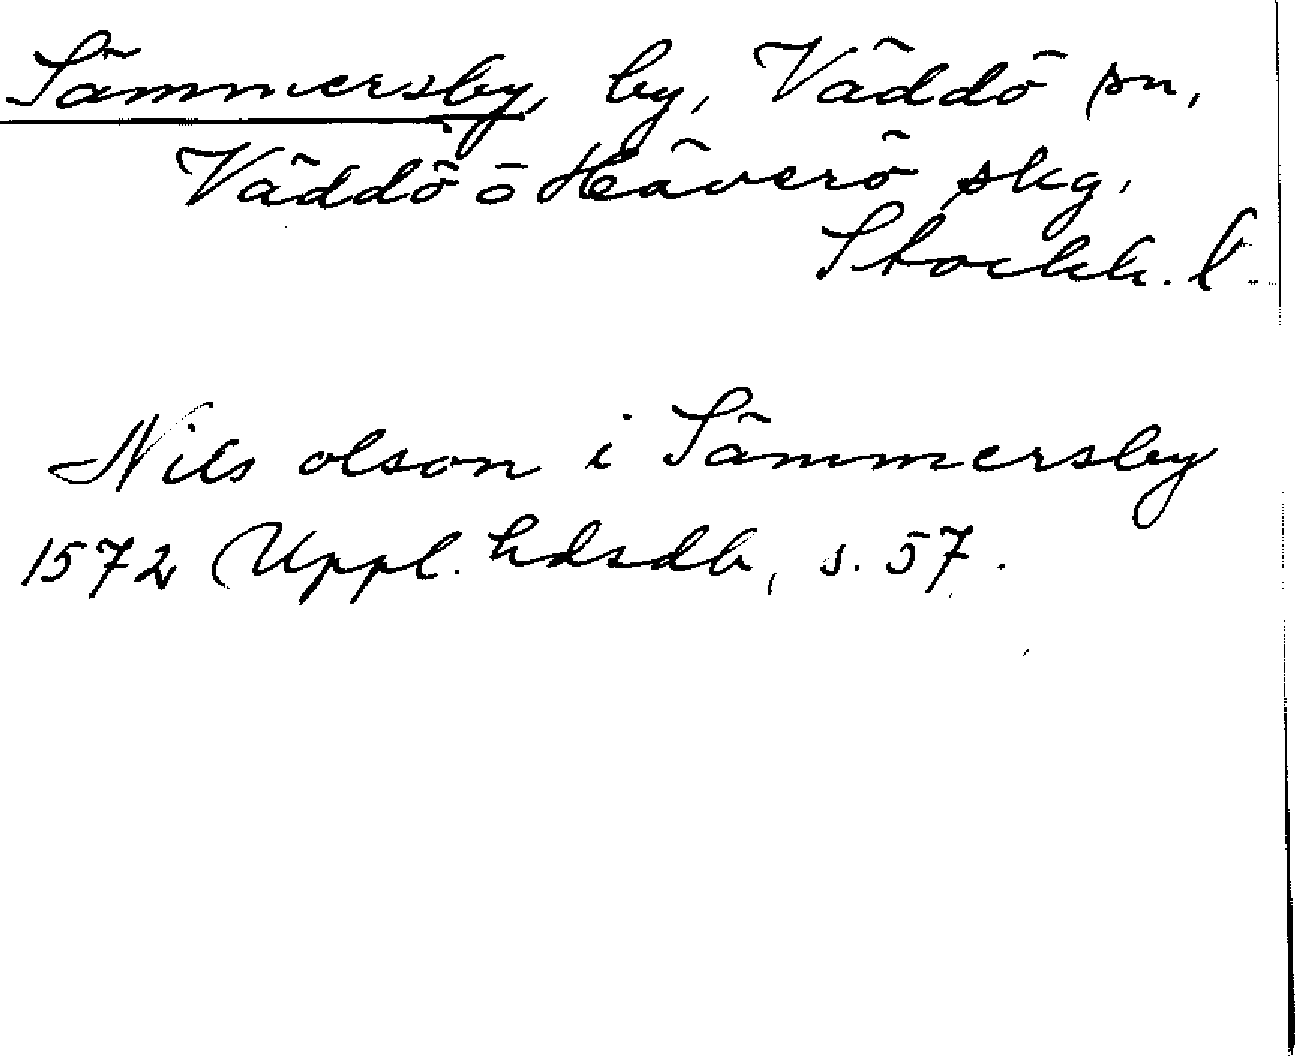 Sämmersby, by, Väddö sn,
Väddö o Häverö skg,
Stockh. l.
Nils olson i Sämmersby
1572 Uppl. hdsdb, s. 57.